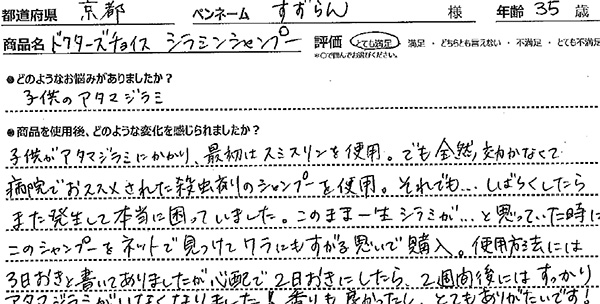 都道府県 京都 ペンネーム すずらん 様 年齢 35 歳
商品名 ドクターズチョイス シラミンシャンプー 評価 とても満足 ・ 満足 ・ どちらとも言えない ・ 不満足 ・ とても不満足
*○で囲んでお選びください
●どのようなお悩みがありましたか?
子供のアタマジラミ
●商品を使用後、どのような変化を感じられましたか?
子供がアタマジラミにかかり、最初はスミスリンを使用。でも全然効かなくて
病院でおススメされた殺虫剤のシャンプーを使用。それでも…しばらくしたら
また発生して本当に困っていました。このまま一生シラミが…と思っていた時に
このシャンプーをネットで見つけてワラにもすがる思いで購入。使用方法には
3日おきと書いてありましたが心配で2日おきにしたら、2週間後にはすっかり
アタマジラミがいなくなりました!香りも良かったし、とてもありがたいです!